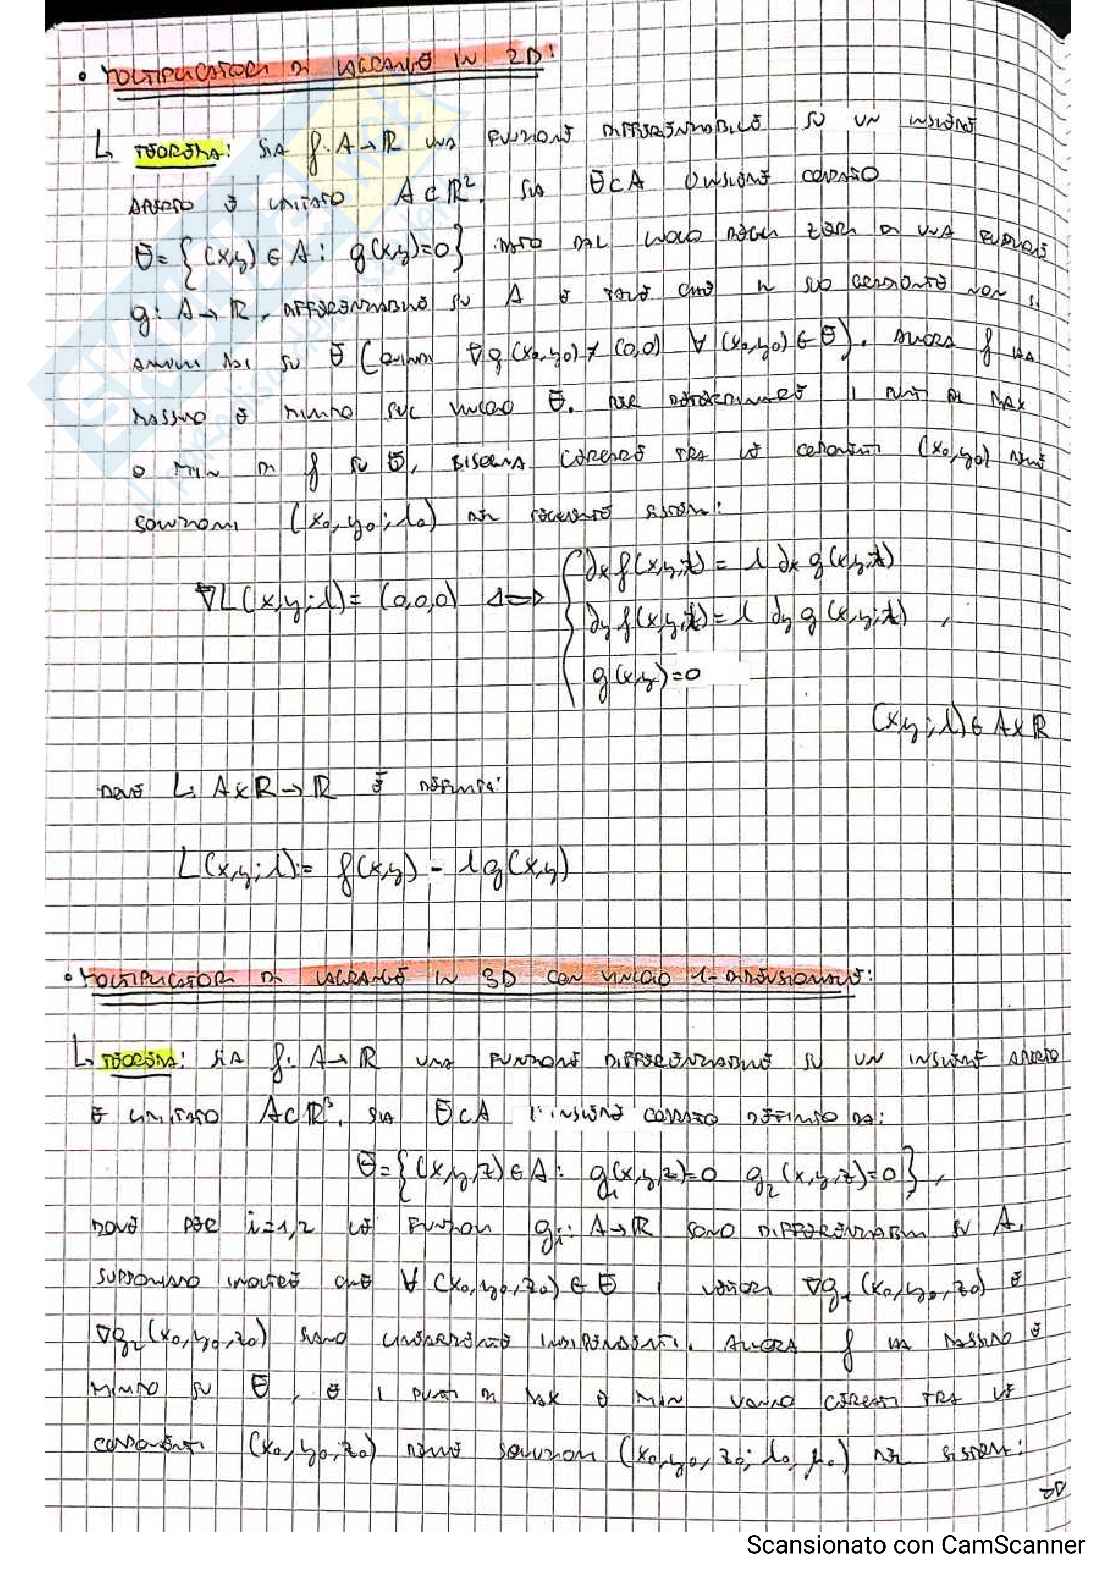 • MOLTIPLICATORI DI LAGRANGE IN 2D:
↳ TEOREMA: SIA f: A→ℝ UNA FUNZIONE DIFFERENZIABILE SU UN INSIEME
APERTO E LIMITATO A⊂ℝ². SIA Θ⊂A L'INSIEME COMPATTO
Θ={(x,y)∈A: g(x,y)=0} DATO DAL LUOGO DEGLI ZERI DI UNA FUNZIONE
g: A→ℝ, DIFFERENZIABILE SU A E TALE CHE IL SUO GRADIENTE NON SI
ANNULLI MAI SU Θ (QUINDI ∇g(x₀,y₀)≠(0,0) ∀(x₀,y₀)∈Θ). ALLORA f HA
MASSIMO E MINIMO SUL VINCOLO Θ. PER DETERMINARE I PUNTI DI MAX
O MIN DI f SU Θ, BISOGNA CERCARE TRA LE COMPONENTI (x₀,y₀) DELLE
SOLUZIONI (x₀,y₀;λ₀) DEL SEGUENTE SISTEMA:
∇L(x,y;λ)=(0,0,0) <=> { ∂x f(x,y,z) = λ ∂x g(x,y,z)
∂y f(x,y,z) = λ ∂y g(x,y,z) ,
g(x,y)=0
(x,y;λ)∈A×ℝ
DOVE L: A×ℝ→ℝ È DEFINITA:
L(x,y;λ):= f(x,y) - λg(x,y)
• MOLTIPLICATORI DI LAGRANGE IN 3D CON VINCOLO 1-DIMENSIONALE:
↳ TEOREMA: SIA f: A→ℝ UNA FUNZIONE DIFFERENZIABILE SU UN INSIEME APERTO
E LIMITATO A⊂ℝ³. SIA Θ⊂A L'INSIEME COMPATTO DEFINITO DA:
Θ={(x,y,z)∈A: g₁(x,y,z)=0 g₂(x,y,z)=0},
DOVE PER i=1,2 LE FUNZIONI gᵢ: A→ℝ SONO DIFFERENZIABILI SU A.
SUPPONIAMO INOLTRE CHE ∀(x₀,y₀,z₀)∈Θ I VETTORI ∇g₁(x₀,y₀,z₀) E
∇g₂(x₀,y₀,z₀) SIANO LINEARMENTE INDIPENDENTI. ALLORA f HA MASSIMO E
MINIMO SU Θ, E I PUNTI DI MAX O MIN VANNO CERCATI TRA LE
COMPONENTI (x₀,y₀,z₀) DELLE SOLUZIONI (x₀,y₀,z₀;λ₀,μ₀) DEL SISTEMA:
Scansionato con CamScanner